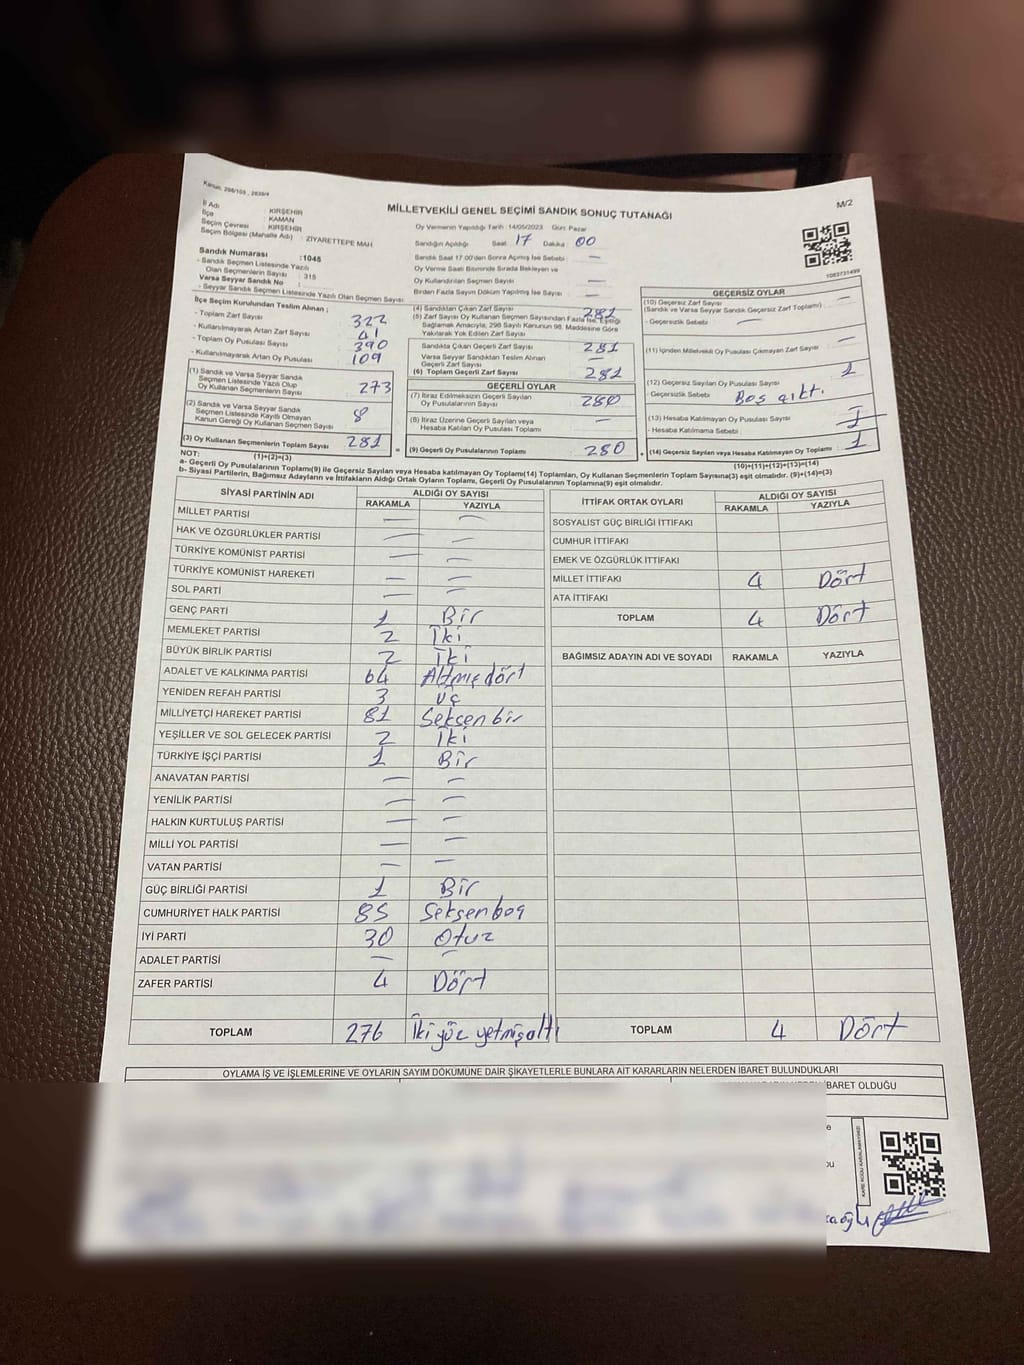 Kanun: 298/105 , 2839/4
MİLLETVEKİLİ GENEL SEÇİMİ SANDIK SONUÇ TUTANAĞI
M/2
İl Adı : KIRŞEHİR
İlçe : KAMAN
Seçim Çevresi : KIRŞEHİR
Seçim Bölgesi (Mahalle Adı) : ZİYARETTEPE MAH
Oy Vermenin Yapıldığı Tarih: 14/05/2023 Gün: Pazar
Sandığın Açıldığı Saat: 17 Dakika: 00
Sandık Saat 17.00'den Sonra Açılmış İse Sebebi : —
Oy Verme Saati Bitiminde Sırada Bekleyen ve
Oy Kullandırılan Seçmen Sayısı : —
Birden Fazla Sayım Döküm Yapılmış İse Sayısı : —
1083731499
Sandık Numarası :1048
- Sandık Seçmen Listesinde Yazılı
Olan Seçmenlerin Sayısı : 315
Varsa Seyyar Sandık No :
- Seyyar Sandık Seçmen Listesinde Yazılı Olan Seçmen Sayısı:
İlçe Seçim Kurulundan Teslim Alınan ;
- Toplam Zarf Sayısı 322
- Kullanılmayarak Artan Zarf Sayısı 41
- Toplam Oy Pusulası Sayısı 390
- Kullanılmayarak Artan Oy Pusulası 109
(1) Sandık ve Varsa Seyyar Sandık
Seçmen Listesinde Yazılı Olup
Oy Kullanan Seçmenlerin Sayısı 273
(2) Sandık ve Varsa Seyyar Sandık
Seçmen Listesinde Kayıtlı Olmayan
Kanun Gereği Oy Kullanan Seçmen Sayısı 8
(3) Oy Kullanan Seçmenlerin Toplam Sayısı 281
(1)+(2)=(3)
(4) Sandıktan Çıkan Zarf Sayısı 281
(5) Zarf Sayısı Oy Kullanan Seçmen Sayısından Fazla İse, Eşitliği
Sağlamak Amacıyla, 298 Sayılı Kanunun 98. Maddesine Göre
Yakılarak Yok Edilen Zarf Sayısı
Sandıkta Çıkan Geçerli Zarf Sayısı 281
Varsa Seyyar Sandıktan Teslim Alınan
Geçerli Zarf Sayısı —
(6) Toplam Geçerli Zarf Sayısı 281
GEÇERLİ OYLAR
(7) İtiraz Edilmeksizin Geçerli Sayılan
Oy Pusulalarının Sayısı 280
(8) İtiraz Üzerine Geçerli Sayılan veya
Hesaba Katılan Oy Pusulası Toplamı —
= (9) Geçerli Oy Pusulalarının Toplamı 280 +
GEÇERSİZ OYLAR
(10) Geçersiz Zarf Sayısı —
(Sandık ve Varsa Seyyar Sandık Geçersiz Zarf Toplamı)
- Geçersizlik Sebebi: —
(11) İçinden Milletvekili Oy Pusulası Çıkmayan Zarf Sayısı —
(12) Geçersiz Sayılan Oy Pusulası Sayısı 1
- Geçersizlik Sebebi: Boş çıktı.
(13) Hesaba Katılmayan Oy Pusulası Sayısı
- Hesaba Katılmama Sebebi :
(14) Geçersiz Sayılan veya Hesaba Katılmayan Oy Toplamı 1
(10)+(11)+(12)+(13)=(14)
NOT:
a- Geçerli Oy Pusulalarının Toplamı(9) ile Geçersiz Sayılan veya Hesaba katılmayan Oy Toplamı(14) Toplamları, Oy Kullanan Seçmenlerin Toplam Sayısına(3) eşit olmalıdır. (9)+(14)=(3)
b- Siyasi Partilerin, Bağımsız Adayların ve İttifakların Aldığı Ortak Oyların Toplamı, Geçerli Oy Pusulalarının Toplamına(9) eşit olmalıdır.
SİYASİ PARTİNİN ADI ALDIĞI OY SAYISI
RAKAMLA YAZIYLA
MİLLET PARTİSİ — —
HAK VE ÖZGÜRLÜKLER PARTİSİ — —
TÜRKİYE KOMÜNİST PARTİSİ — —
TÜRKİYE KOMÜNİST HAREKETİ — —
SOL PARTİ — —
GENÇ PARTİ 1 Bir
MEMLEKET PARTİSİ 2 İki
BÜYÜK BİRLİK PARTİSİ 2 İki
ADALET VE KALKINMA PARTİSİ 64 Altmış dört
YENİDEN REFAH PARTİSİ 3 üç
MİLLİYETÇİ HAREKET PARTİSİ 81 Seksen bir
YEŞİLLER VE SOL GELECEK PARTİSİ 2 İki
TÜRKİYE İŞÇİ PARTİSİ 1 Bir
ANAVATAN PARTİSİ — —
YENİLİK PARTİSİ — —
HALKIN KURTULUŞ PARTİSİ — —
MİLLİ YOL PARTİSİ — —
VATAN PARTİSİ — —
GÜÇ BİRLİĞİ PARTİSİ 1 Bir
CUMHURİYET HALK PARTİSİ 85 Seksenbeş
İYİ PARTİ 30 Otuz
ADALET PARTİSİ — —
ZAFER PARTİSİ 4 Dört
TOPLAM 276 İki yüz yetmiş altı
İTTİFAK ORTAK OYLARI ALDIĞI OY SAYISI
RAKAMLA YAZIYLA
SOSYALİST GÜÇ BİRLİĞİ İTTİFAKI
CUMHUR İTTİFAKI
EMEK VE ÖZGÜRLÜK İTTİFAKI
MİLLET İTTİFAKI 4 Dört
ATA İTTİFAKI
TOPLAM 4 Dört
BAĞIMSIZ ADAYIN ADI VE SOYADI RAKAMLA YAZIYLA
TOPLAM 4 Dört
OYLAMA İŞ VE İŞLEMLERİNE VE OYLARIN SAYIM DÖKÜMÜNE DAİR ŞİKAYETLERLE BUNLARA AİT KARARLARIN NELERDEN İBARET BULUNDUKLARI
İBARET OLDUĞU